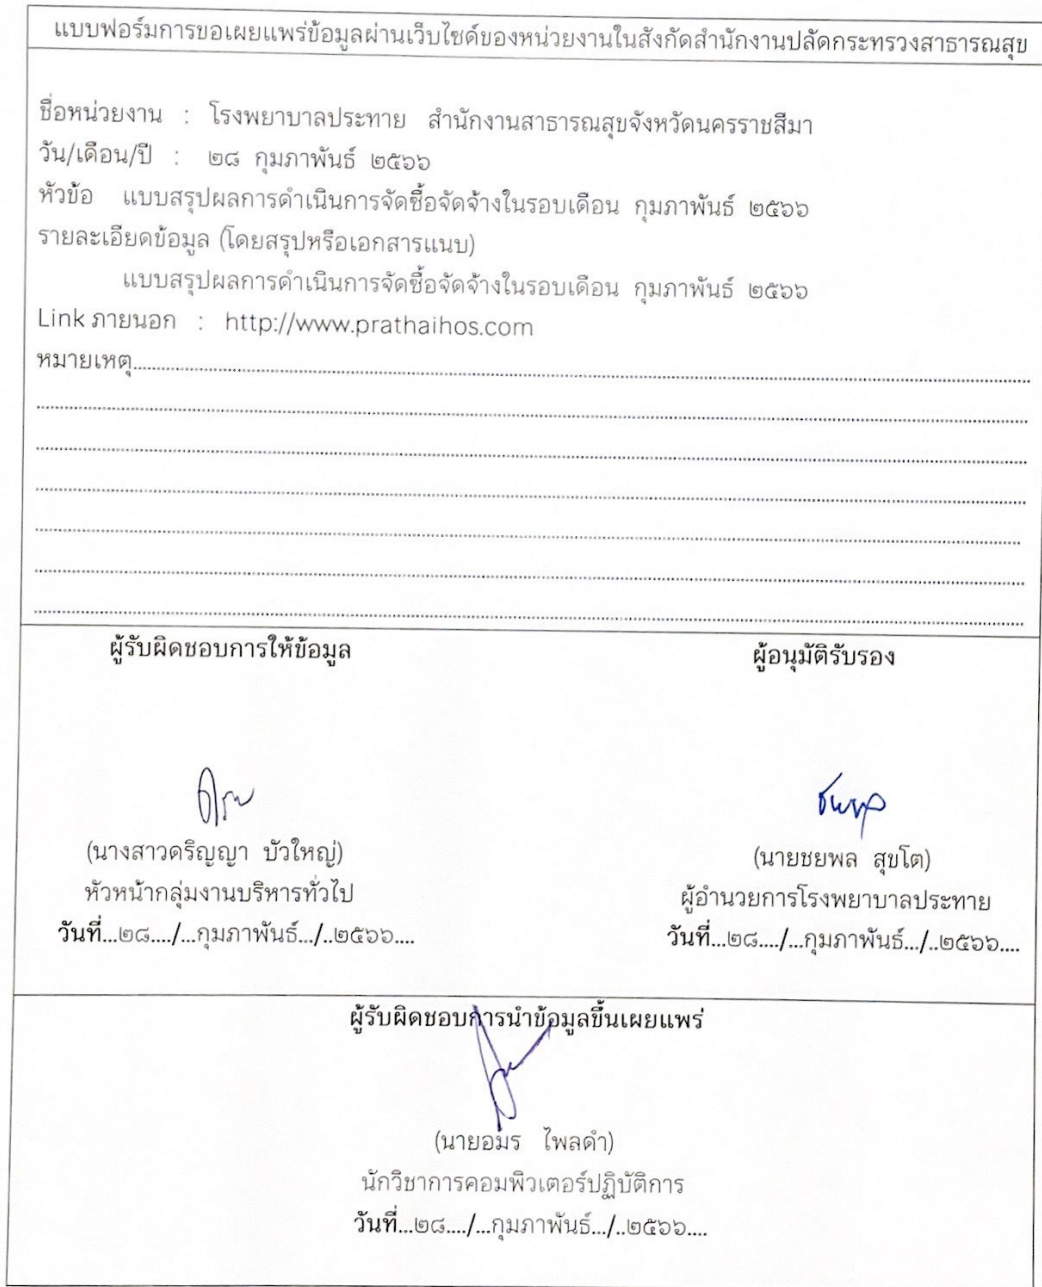 แบบฟอร์มการขอเผยแพร่ข้อมูลผ่านเว็บไซด์ของหน่วยงานในสังกัดสำนักงานปลัดกระทรวงสาธารณสุข
ชื่อหน่วยงาน : โรงพยาบาลประทาย สำนักงานสาธารณสุขจังหวัดนครราชสีมา
วัน/เดือน/ปี : ๒๘ กุมภาพันธ์ ๒๕๖๖
หัวข้อ แบบสรุปผลการดำเนินการจัดซื้อจัดจ้างในรอบเดือน กุมภาพันธ์ ๒๕๖๖
รายละเอียดข้อมูล (โดยสรุปหรือเอกสารแนบ)
แบบสรุปผลการดำเนินการจัดซื้อจัดจ้างในรอบเดือน กุมภาพันธ์ ๒๕๖๖
Link ภายนอก : http://www.prathaihos.com
หมายเหตุ
ผู้รับผิดชอบการให้ข้อมูล
(นางสาวดริญญา บัวใหญ่)
หัวหน้ากลุ่มงานบริหารทั่วไป
วันที่...๒๘..../...กุมภาพันธ์.../..๒๕๖๖....
ผู้อนุมัติรับรอง
(นายชยพล สุขโต)
ผู้อำนวยการโรงพยาบาลประทาย
วันที่...๒๘..../...กุมภาพันธ์.../..๒๕๖๖....
ผู้รับผิดชอบการนำข้อมูลขึ้นเผยแพร่
(นายอมร ไพลดำ)
นักวิชาการคอมพิวเตอร์ปฏิบัติการ
วันที่...๒๘..../...กุมภาพันธ์.../..๒๕๖๖....